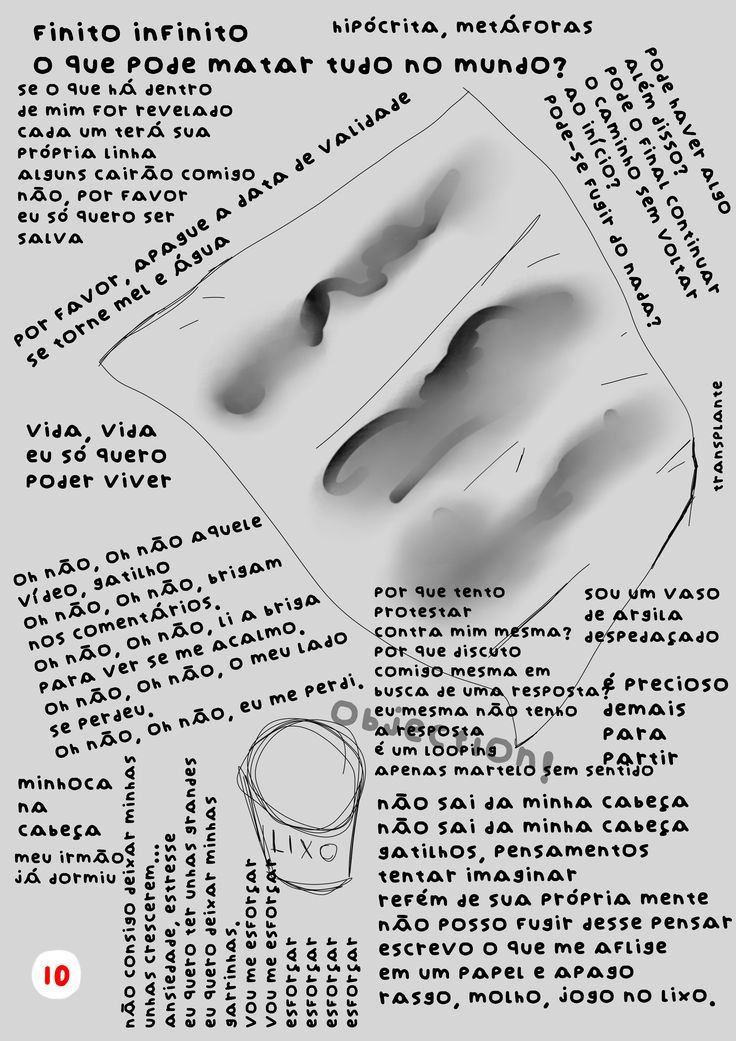 Finito infinito
hipócrita, metáforas
o que pode matar tudo no mundo?
se o que há dentro
de mim for revelado
cada um terá sua
própria linha
alguns cairão comigo
não, por favor
eu só quero ser
salva
por favor, apague a data de validade
se torne mel e água
pode haver algo
além disso?
pode o final continuar
o caminho sem voltar
ao início?
pode-se fugir do nada?
transplante
vida, vida
eu só quero
poder viver
oh não, oh não aquele
vídeo, gatilho
oh não, oh não, brigam
nos comentários.
oh não, oh não, li a briga
para ver se me acalmo.
oh não, oh não, o meu lado
se perdeu.
oh não, oh não, eu me perdi.
por que tento
protestar
contra mim mesma?
por que discuto
comigo mesma em
busca de uma resposta?
eu mesma não tenho
a resposta
é um looping
apenas martelo sem sentido
objection!
sou um vaso
de argila
despedaçado
é precioso
demais
para
partir
minhoca
na
cabeça
meu irmão
já dormiu
não consigo deixar minhas
unhas crescerem...
ansiedade, estresse
eu quero ter unhas grandes
eu quero deixar minhas
garrinhas.
vou me esforçar
vou me esforçar
esforçar
esforçar
esforçar
esforçar
LIXO
não sai da minha cabeça
não sai da minha cabeça
gatilhos, pensamentos
tentar imaginar
refém de sua própria mente
não posso fugir desse pensar
escrevo o que me aflige
em um papel e apago
rasgo, molho, jogo no lixo.
10